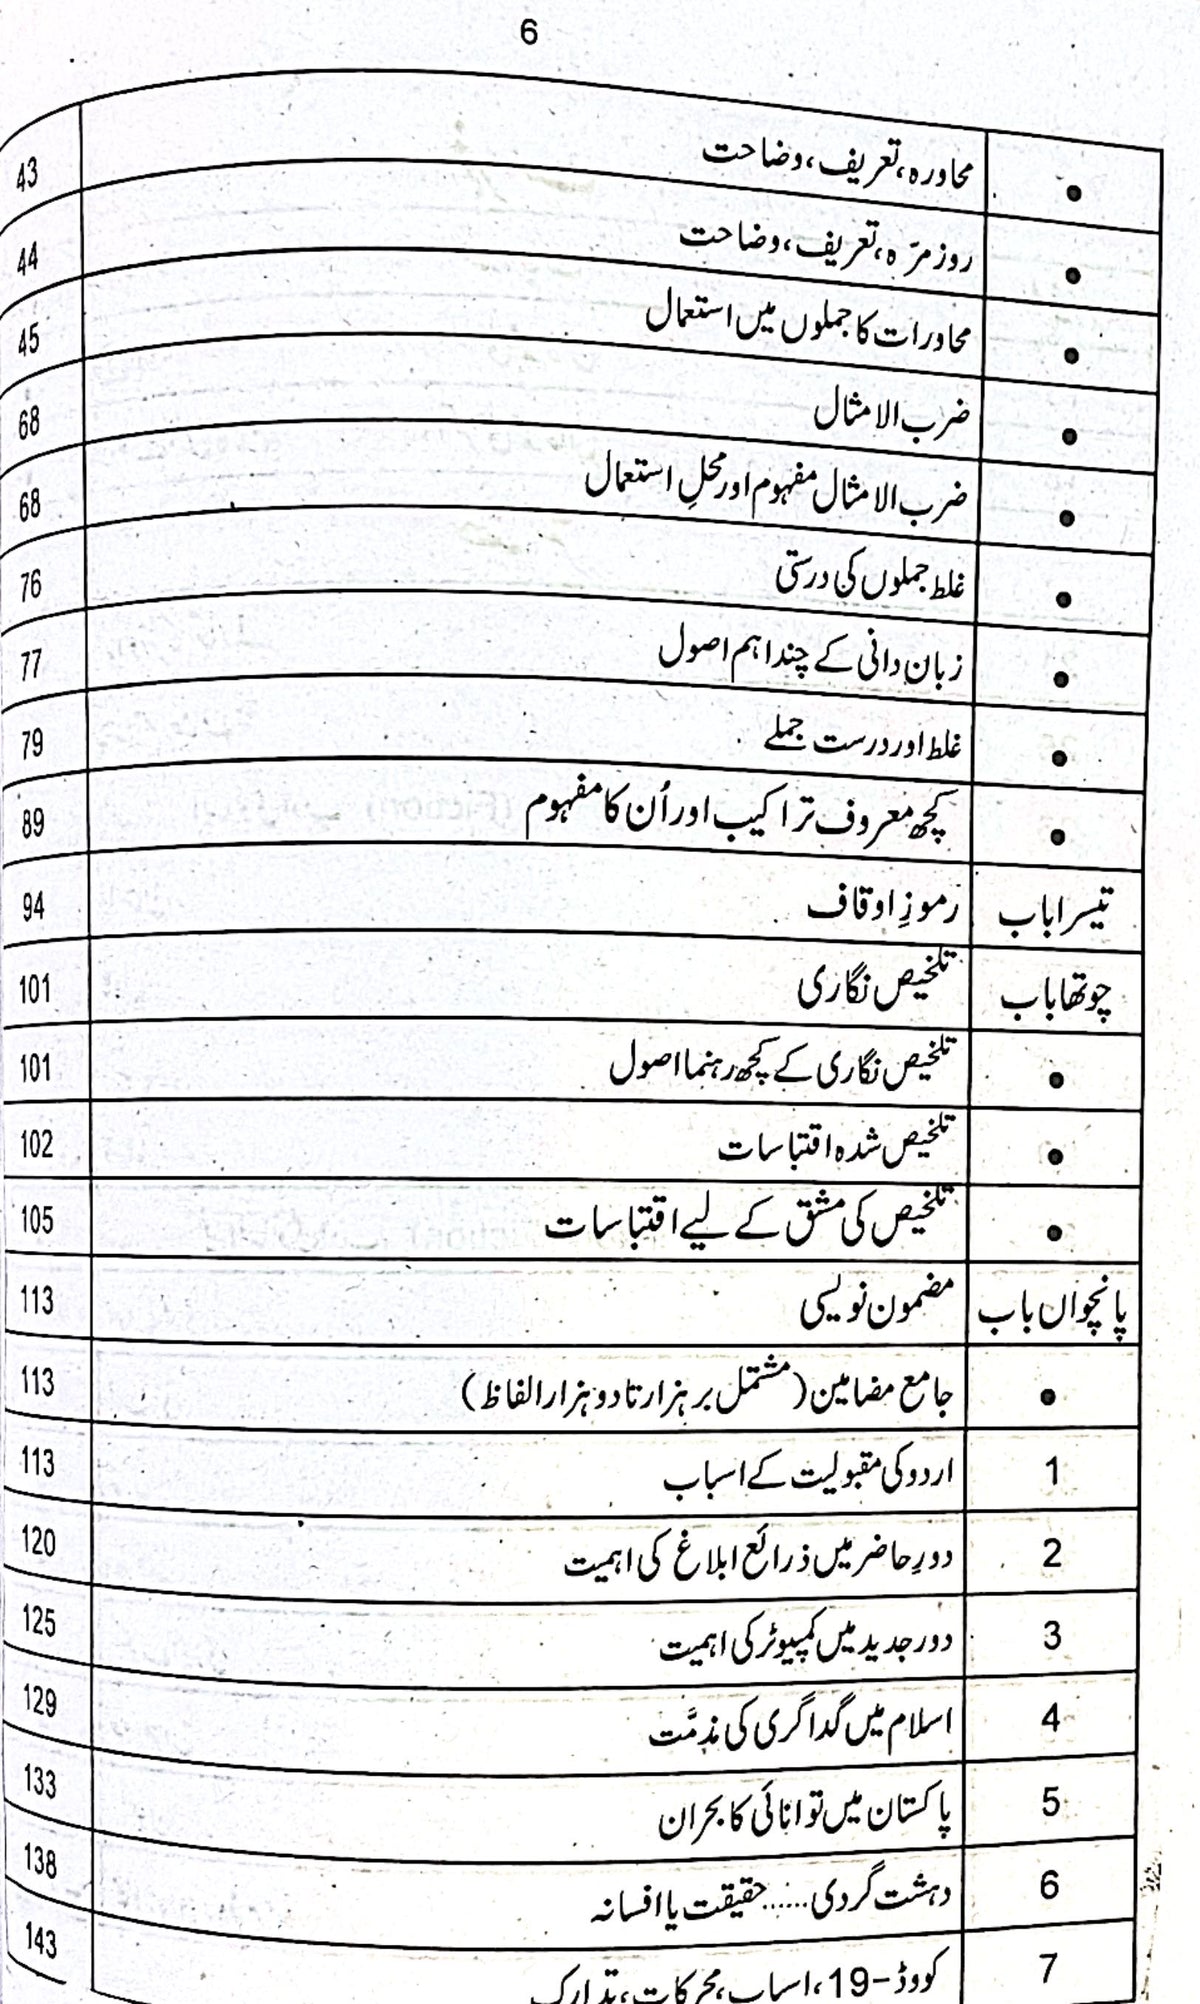 6
• محاورہ، تعریف، وضاحت 43
• روزمرّہ، تعریف، وضاحت 44
• محاورات کا جملوں میں استعمال 45
• ضرب الامثال 68
• ضرب الامثال مفہوم اور محلِ استعمال 68
• غلط جملوں کی درستی 76
• زبان دانی کے چند اہم اصول 77
• غلط اور درست جملے 79
• کچھ معروف تراکیب اور اُن کا مفہوم 89
تیسرا باب رموزِ اوقاف 94
چوتھا باب تلخیص نگاری 101
• تلخیص نگاری کے کچھ رہنما اصول 101
• تلخیص شدہ اقتباسات 102
• تلخیص کی مشق کے لیے اقتباسات 105
پانچواں باب مضمون نویسی 113
• جامع مضامین (مشتمل بر ہزار تا دو ہزار الفاظ) 113
1 اردو کی مقبولیت کے اسباب 113
2 دورِ حاضر میں ذرائع ابلاغ کی اہمیت 120
3 دور جدید میں کمپیوٹر کی اہمیت 125
4 اسلام میں گداگری کی مذمَّت 129
5 پاکستان میں توانائی کا بحران 133
6 دہشت گردی......حقیقت یا افسانہ 138
7 کووڈ-19، اسباب، محرکات، تدارک 143